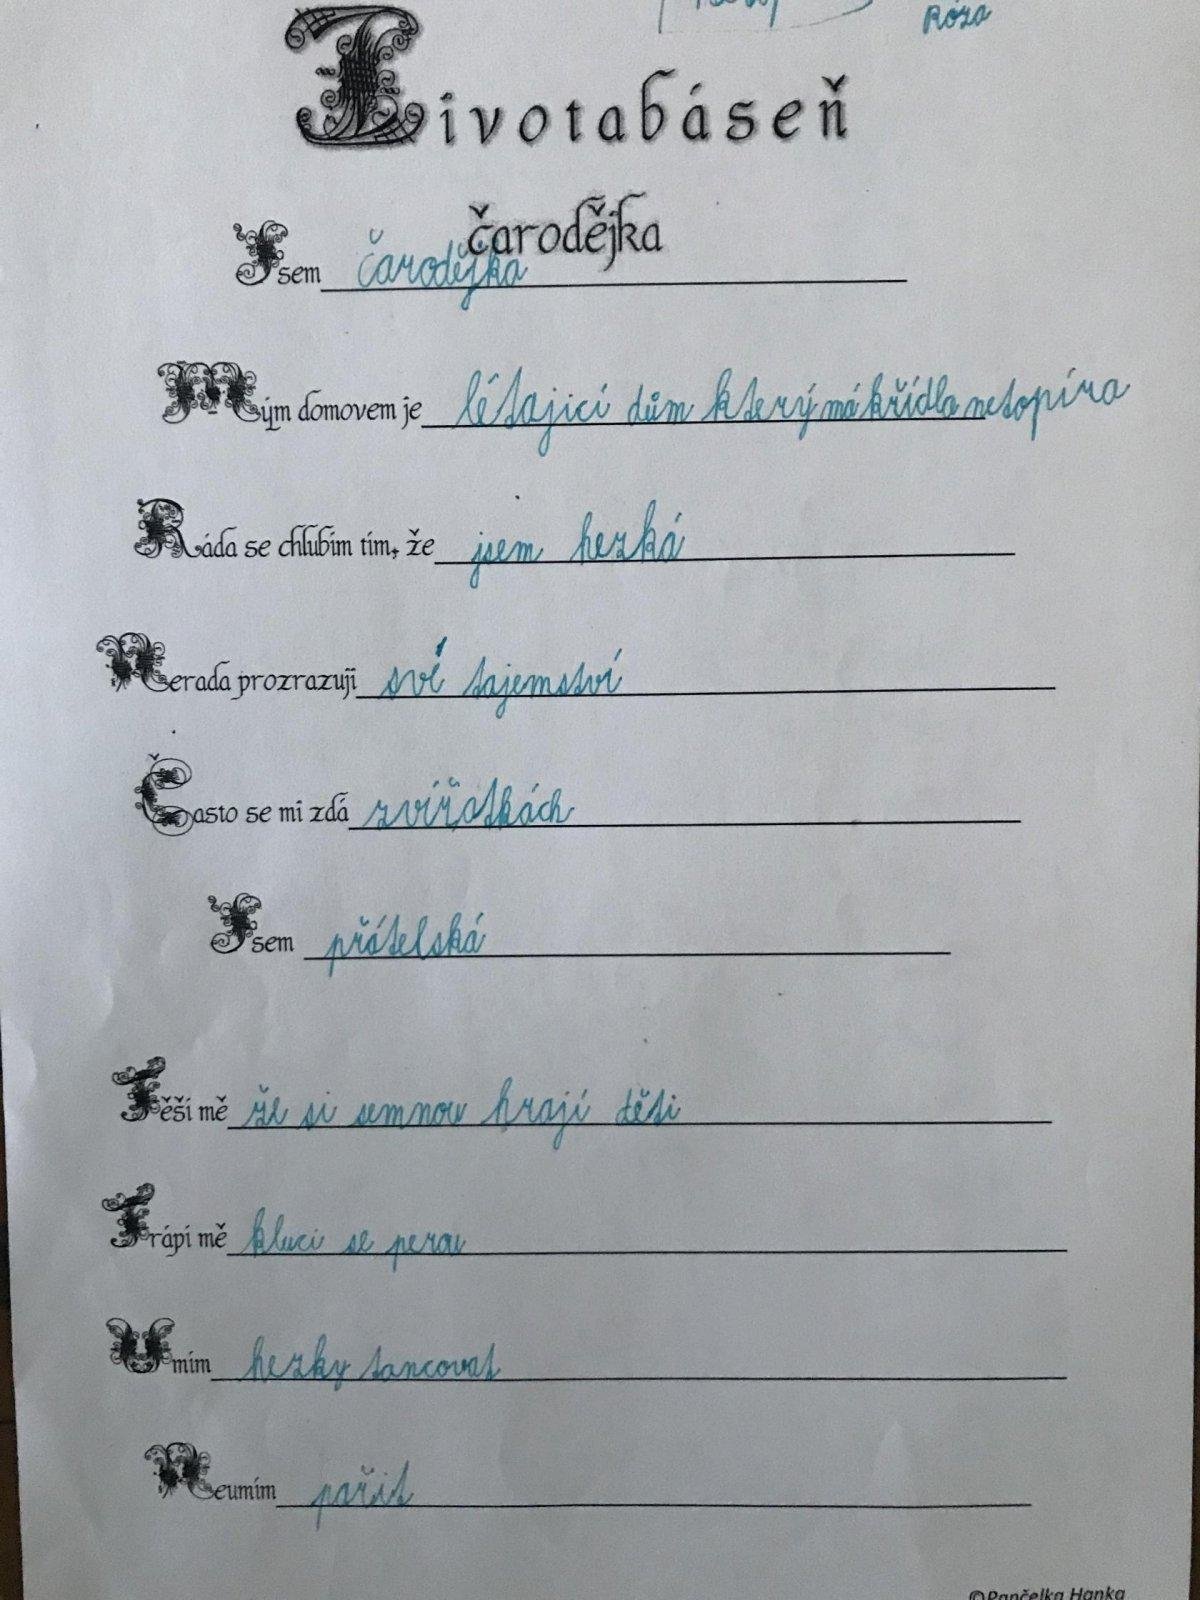 Róza
Životabáseň
čarodějka
Jsem čarodějka
Mým domovem je létajicí dům který má křídla netopíra
Ráda se chlubím tím, že jsem hezká
Nerada prozrazuji své tajemství
Často se mi zdá zvířatkách
Jsem přátelská
Těší mě že si semnou hrají děti
Trápí mě kluci se perou
Umím hezky tancovat
Neumím pařit
©Pančelka Hanka